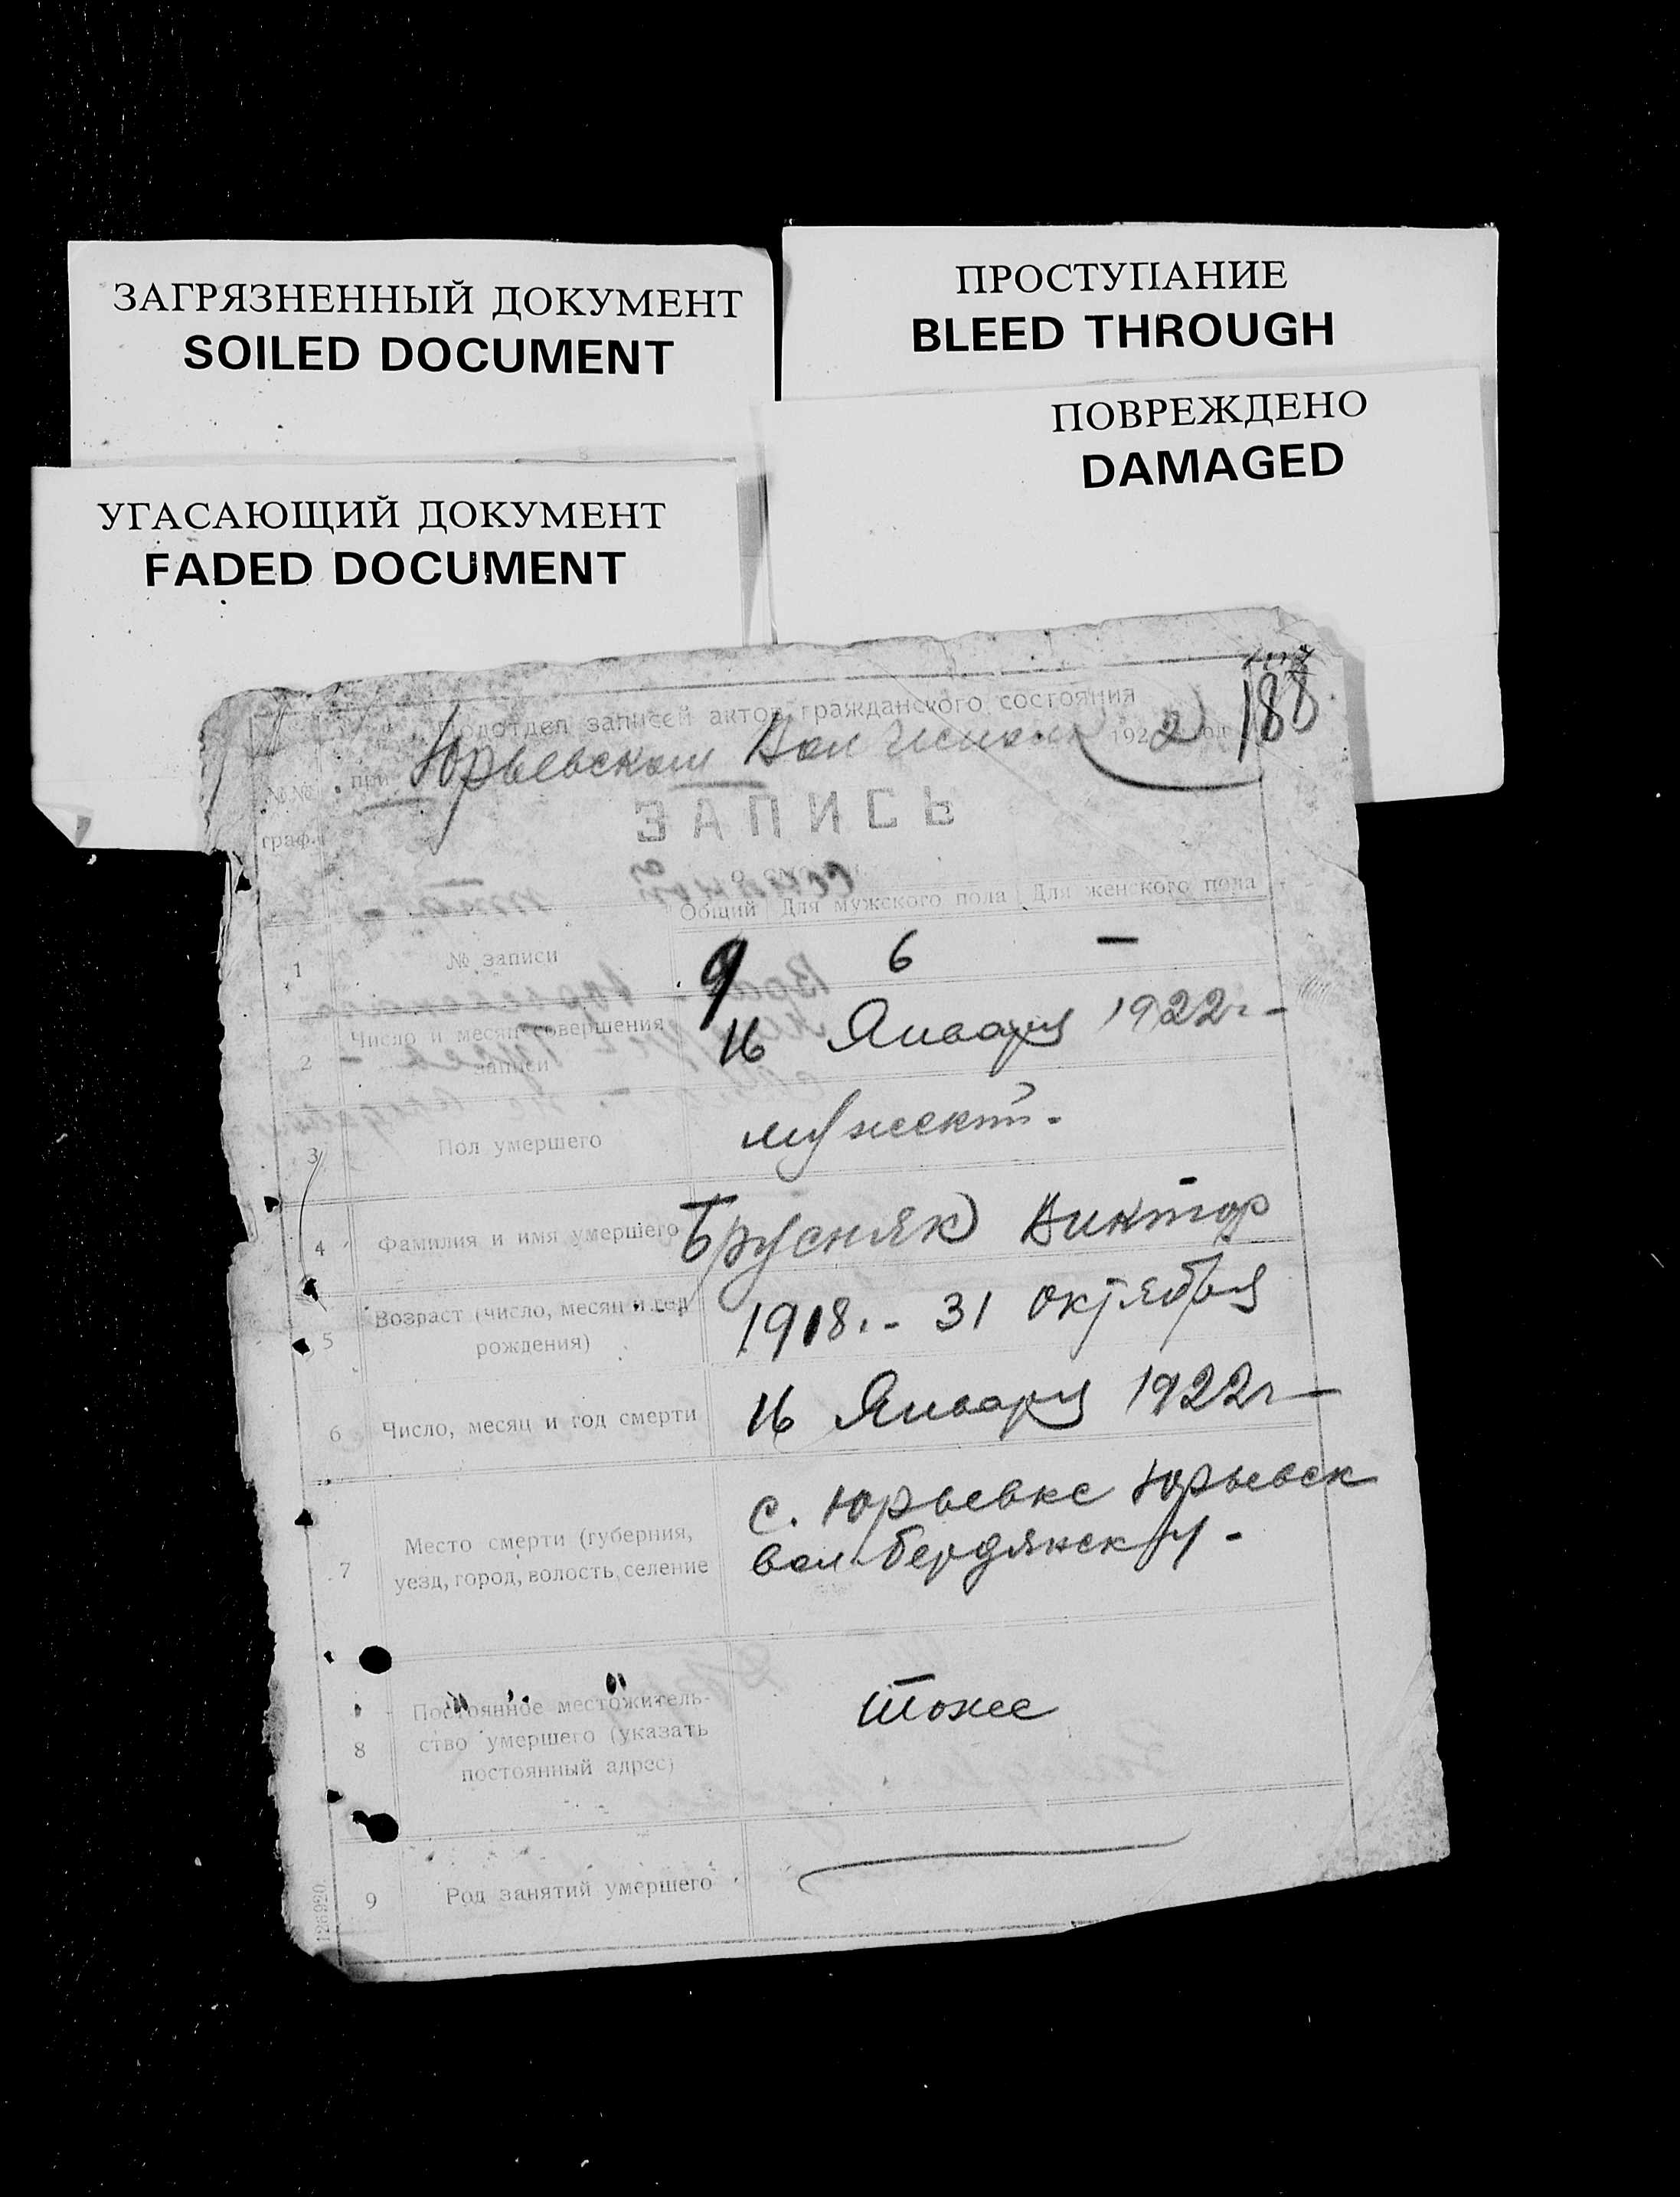 ЗАГРЯЗНЕННЫЙ ДОКУМЕНТ
SOILED DOCUMENT
ПРОСТУПАНИЕ
BLEED THROUGH
ПОВРЕЖДЕНО
DAMAGED
УГАСАЮЩИЙ ДОКУМЕНТ
FADED DOCUMENT
188
Подотдел записей актов гражданского состояния
при Юрьевском Вол 1922 год
№№ граф.
ЗАПИСЬ
о смерти
Общий Для мужского пола Для женского пола
1 № записи 9 6 —
2 Число и месяц совершения записи 16 Января 1922г. -
3 Пол умершего мужской -
4 Фамилия и имя умершего Брусняк Виктор
5 Возраст (число, месяц и год рождения) 1918. - 31 октября
6 Число, месяц и год смерти 16 Января 1922г —
7 Место смерти (губерния, уезд, город, волость, селение с. Юрьевке Юрьевск
вол Бердянск у -
8 Постоянное местожительство умершего (указать постоянный адрес) тоже
9 Род занятий умершего
126920.